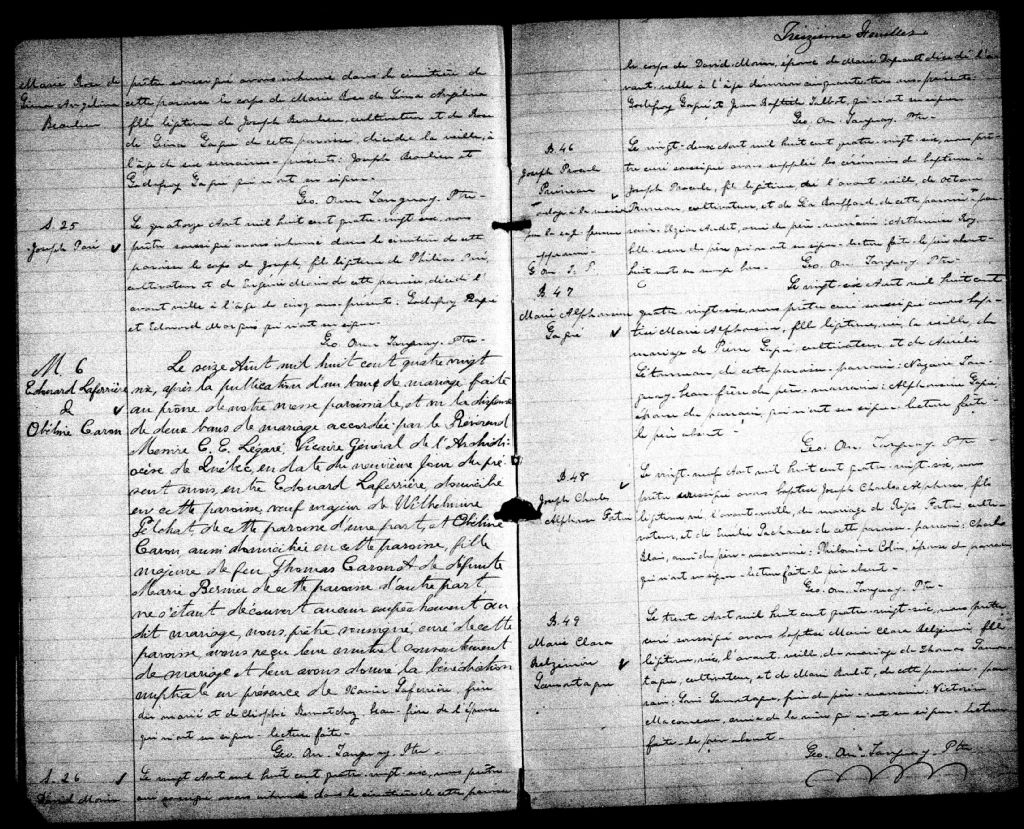 Marie Rose de
Gina Angelina
Beaulieu
prêtre soussigné avons inhumé dans le cimetière de
cette paroisse le corps de Marie Rose de Gina Angelina
fille légitime de Joseph Beaulieu, cultivateur et de Rose
de Gina Gagné de cette paroisse, décédée la veille, à
l'âge de six semaines - présents: Joseph Beaulieu et
Godefroy Gagné qui n'ont su signer.
Geo. On. Tanguay Ptre
S. 25
Joseph Paré
Le quatorze Aout mil huit cent quatre vingt six, nous
prêtre soussigné avons inhumé dans le cimetière de cette
paroisse le corps de Joseph, fils légitime de Philias Paré,
cultivateur et de Eugénie de cette paroisse, décédé l'
avant veille à l'âge de cinq ans. présents: Godefroy Gagné
et Edouard qui n'ont su signer.
Geo. On. Tanguay. Ptre
M. 6
Edouard Laferrière
&
Obéline Caron
Le seize Aout mil huit cent quatre vingt
six, après la publication d'un banc de mariage faite
au prône de notre messe paroissiale, et vu la dispense
de deux bans de mariage accordée par le Révérend
Messire C. E. Légaré, Vicaire Général de l'Archidi-
ocèse de Québec, en date du neuvième jour du pré-
sent mois, entre Edouard Laferrière, domicilié
en cette paroisse, veuf majeur de Wilhelmine
de cette paroisse d'une part, et Obéline
Caron, aussi domiciliée en cette paroisse, fille
majeure de feu Thomas Caron & de défunte
Marie Bernier de cette paroisse d'autre part,
ne s'étant découvert aucun empêchement au
dit mariage, nous, prêtre soussigné, curé de cette
paroisse, avons reçu leur mutuel consentement
de mariage et leur avons donné la bénédiction
nuptiale en présence de Xavier Laferrière, frère
du marié et de beau-frère de l'épouse
qui n'ont su signer - lecture faite -
Geo. On. Tanguay Ptre
S. 26
David Morin
Le vingt Aout mil huit cent quatre-vingt-six, nous prêtre
curé soussigné avons inhumé dans le cimetière de cette paroisse
Treizième
le corps de David Morin, époux de Marie décédé l'a-
vant veille à l'âge d'environ cinquante trois ans - présents:
Godefroy Gagné et Jean Baptiste Talbot, qui n'ont su signer
Geo. On. Tanguay - Ptre
B. 46
Joseph
Le vingt-deux Aout mil huit cent quatre-vingt-six, nous prê-
tre curé soussigné avons suppléé les cérémonies du baptême à
Joseph fils légitime né l'avant veille, de Octave
cultivateur, et de de cette paroisse - par-
rain: ami du père - marraine: Arthémise Roy,
qui n'ont su signer - lecture faite - le père absent -
Geo. On. Tanguay Ptre
B. 47
Marie Alphonsine
Gagné
Le vingt-six Aout mil huit cent
quatre-vingt-six, nous prêtre curé soussigné avons bap-
tisé Marie Alphonsine, fille légitime, née la veille, du
mariage de Pierre Gagné, cultivateur, et de Aurélie
de cette paroisse - parrain: Nazaire Tan-
guay, beau-frère du père - marraine: Alphonsine Gagné,
épouse du parrain, qui n'ont su signer - lecture faite -
le père absent -
Geo. On. Tanguay Ptre
B. 48
Joseph Charles
Alphonse
Le vingt-neuf Aout mil huit cent quatre-vingt-six, nous
prêtre soussigné avons baptisé Joseph Charles Alphonse, fils
légitime né l'avant-veille, du mariage de Régis culti-
vateur, et de Emélie de cette paroisse - parrain: Charles
Blais, ami du père - marraine: Philomène Colin, épouse du parrain,
qui n'ont su signer - lecture faite - le père absent -
Geo. On. Tanguay. Ptre
B. 49
Marie Clara
Lamontagne
Le trente Aout mil huit cent quatre-vingt-six, nous prêtre
curé soussigné avons baptisé Marie Clara fille
légitime, née l'avant-veille, du mariage de Thomas Lamon-
tagne, cultivateur, et de Marie de cette paroisse - par-
rain: Lamontagne, frère du père - marraine: Victoria
amie de la mère qui n'ont su signer - lecture
faite - le père absent -
Geo. On. Tanguay Ptre